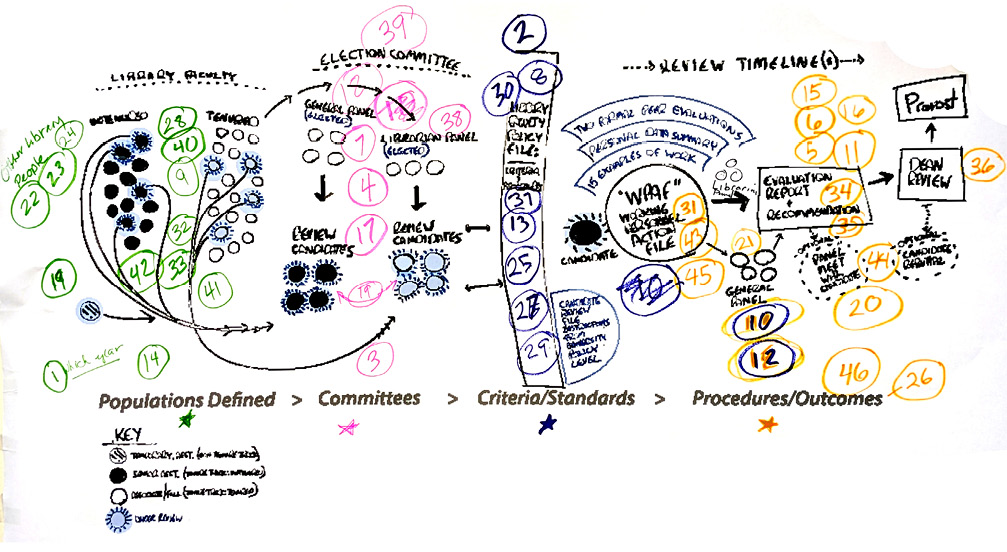 39
2
ELECTION COMMITTEE
LIBRARY FACULTY
REVIEW TIMELINE(S)
8
30
8
15
16
6
5
11
Provost
GENERAL PANEL
(ELECTED)
LIBRARIAN PANEL
(ELECTED)
38
7
28
40
9
24
23
22
Other library
People
TENURED
LIBRARY
FACULTY
POLICY
FILE:
CRITERIA
TWO FORMAL PEER EVALUATIONS
PERSONAL DATA SUMMARY
15 EXAMPLES OF WORK
"WPAF"
WORKING
PERSONNEL
ACTION
FILE
CANDIDATE
EVALUATION
REPORT
+
RECOMMENDATION
34
35
DEAN
REVIEW
36
4
17
37
13
25
27
29
31
43
45
21
44
20
OPTIONAL
PANEL
MEET
CANDIDATE
OPTIONAL
CANDIDATE
REBUTTAL
GENERAL
PANEL
10
12
46
26
REVIEW
CANDIDATES
REVIEW
CANDIDATES
19
3
32
33
42
41
19
1
14
CANDIDATE
REVIEW
FILE
INSTRUCTIONS
FROM
UNIVERSITY
POLICY
LEVEL
Populations Defined > Committees > Criteria/Standards > Procedures/Outcomes
KEY
UNDER REVIEW